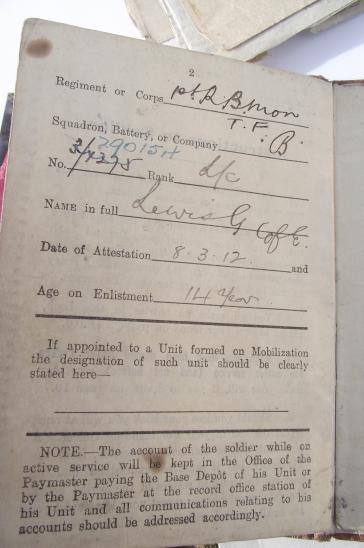 2
Regiment or Corps pt R. B. Mon
T. F.
Squadron, Battery, or Company B
290154
No. 3/4275 Rank L/c
NAME in full Lewis G C of E.
Date of Attestation 8.3.12 and
Age on Enlistment 14 Year
If appointed to a Unit formed on Mobilization
the designation of such unit should be clearly
stated here—
NOTE.—The account of the soldier while on
active service will be kept in the Office of the
Paymaster paying the Base Depôt of his Unit or
by the Paymaster at the record office station of
his Unit and all communications relating to his
accounts should be addressed accordingly.